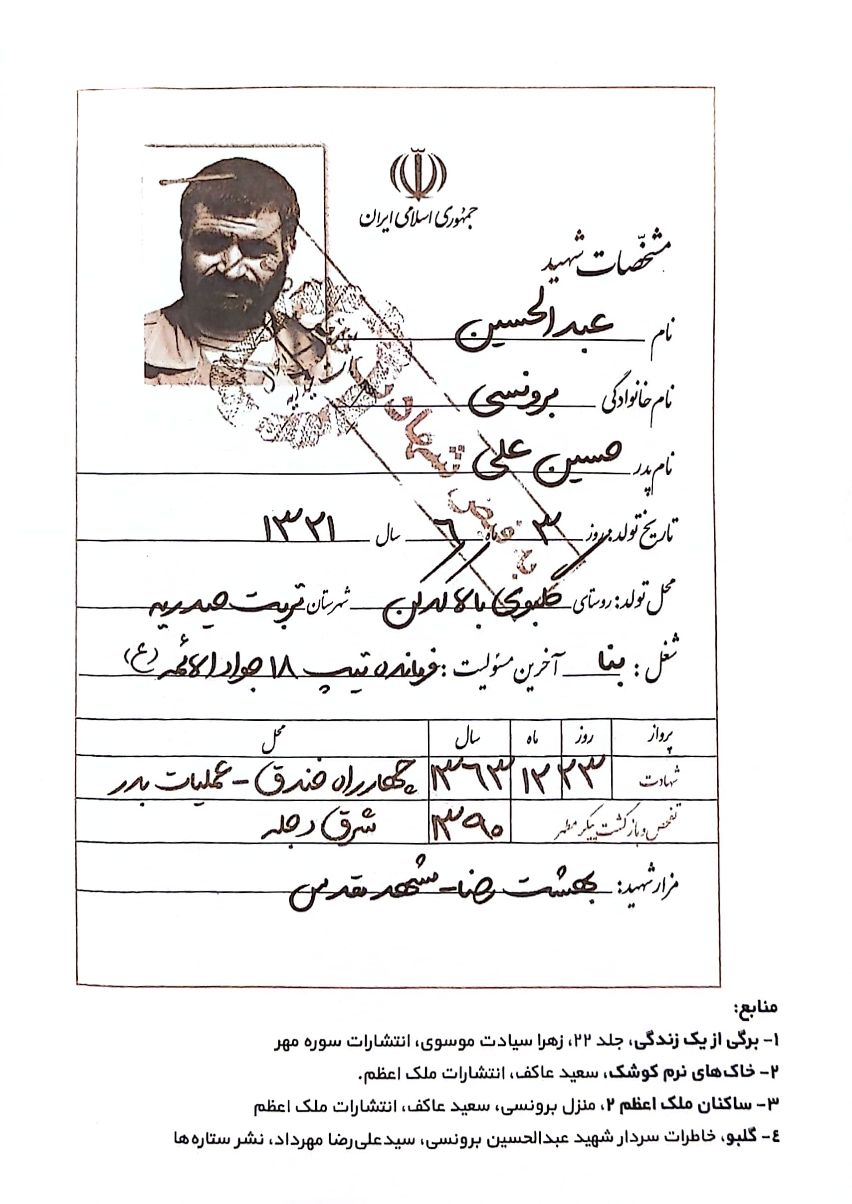 جمهوری اسلامی ایران
مشخّصات شهید
نام عبدالحسین
نام خانوادگی برونسی
نام پدر حسین علی
تاریخ تولد: روز ۳ ماه ۶ سال ۱۳۲۱
محل تولد: روستای گلبوی بالا کدکن شهرستان تربت حیدریه
شغل: بنا آخرین مسئولیت: فرمانده تیپ ۱۸ جوادالائمه (ع)
پرواز روز ماه سال محل
شهادت ۲۳ ۱۲ ۱۳۶۳ چهارراه خندق - عملیات بدر
تفحص و بازگشت پیکر مطهر ۱۳۹۰ شرق دجله
مزار شهید: بهشت رضا - مشهد مقدس
به فیض شهادت
منابع:
۱- برگی از یک زندگی، جلد ۲۲، زهرا سیادت موسوی، انتشارات سوره مهر
۲- خاک‌های نرم کوشک، سعید عاکف، انتشارات ملک اعظم.
۳- ساکنان ملک اعظم ۲، منزل برونسی، سعید عاکف، انتشارات ملک اعظم
۴- گلبو، خاطرات سردار شهید عبدالحسین برونسی، سیدعلی‌رضا مهرداد، نشر ستاره‌ها